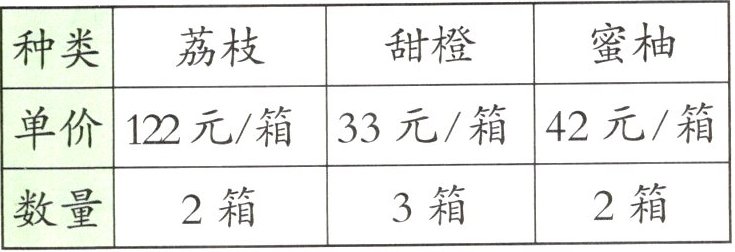 种类 荔枝 甜橙 蜜柚
单价 122元/箱 33元/箱 42元/箱
数量 2箱 3箱 2箱